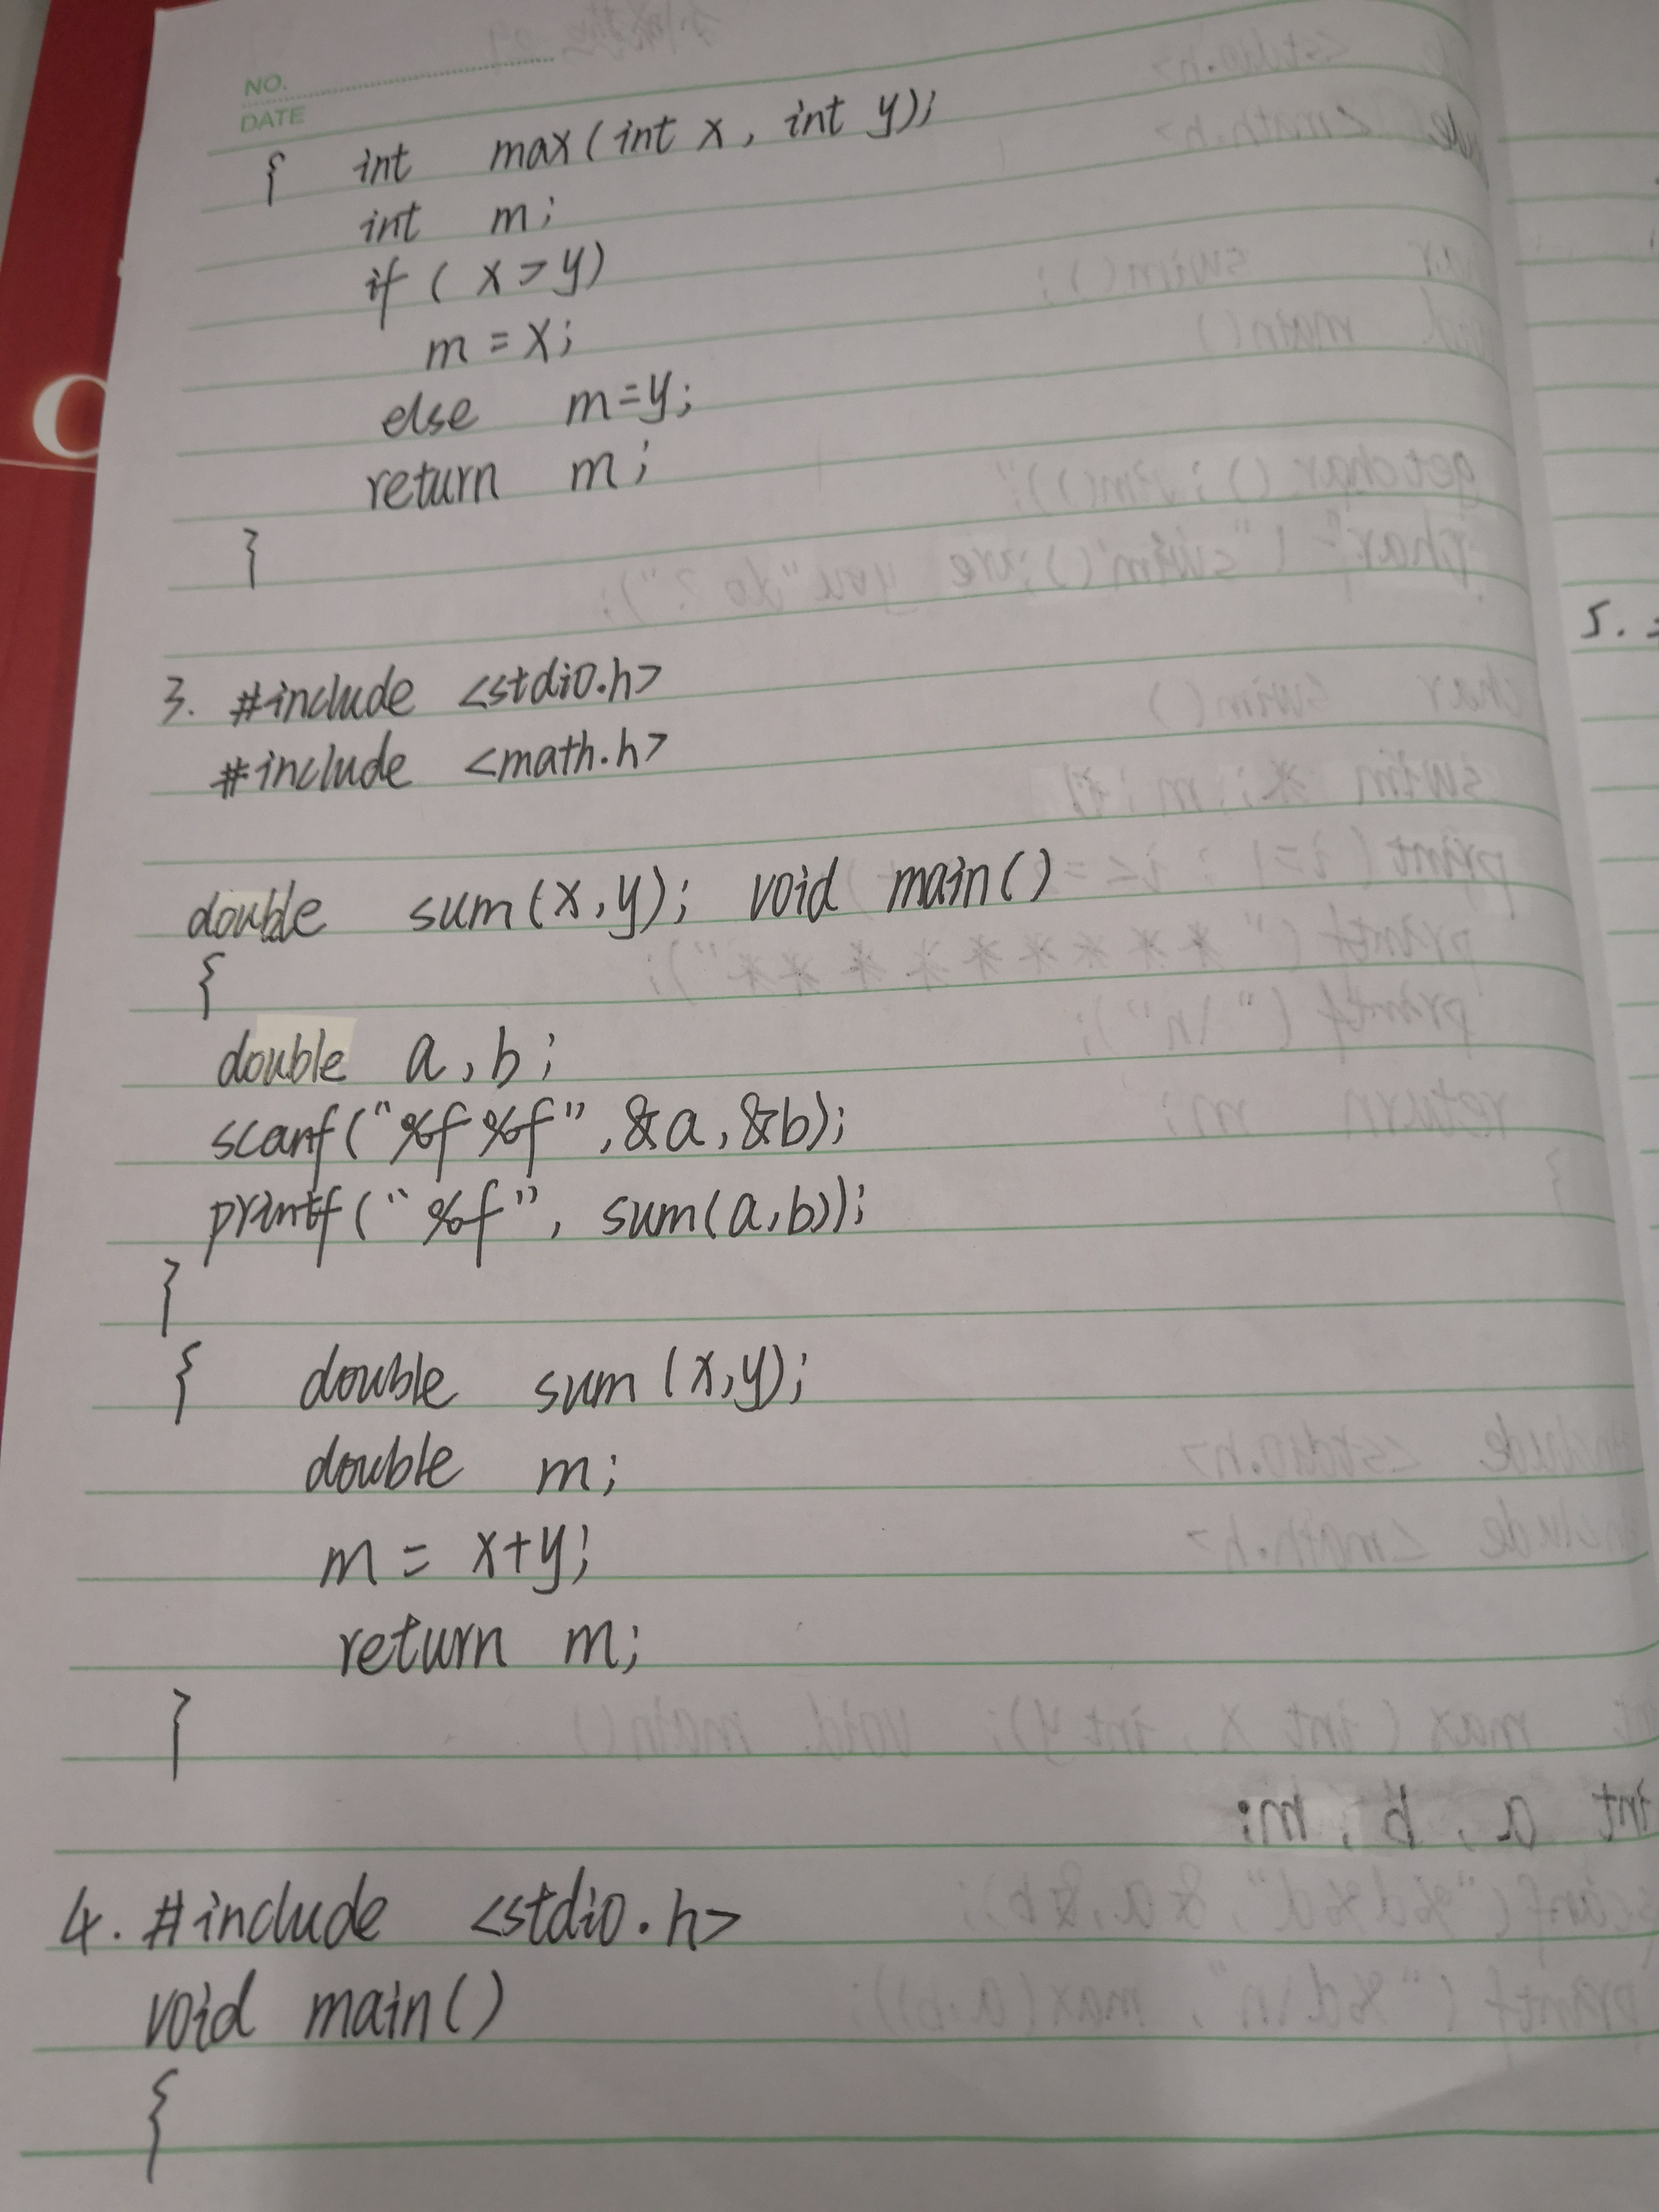 NO.
DATE
{ int max(int x, int y);
int m;
if (x>y)
m=x;
else m=y;
return m;
}
3. #include <stdio.h>
#include <math.h>
double sum(x,y); void main()
{
double a,b;
scanf("%f%f",&a,&b);
printf("%f", sum(a,b));
}
{ double sum(x,y);
double m;
m= x+y;
return m;
}
4. #include <stdio.h>
void main()
{
5.